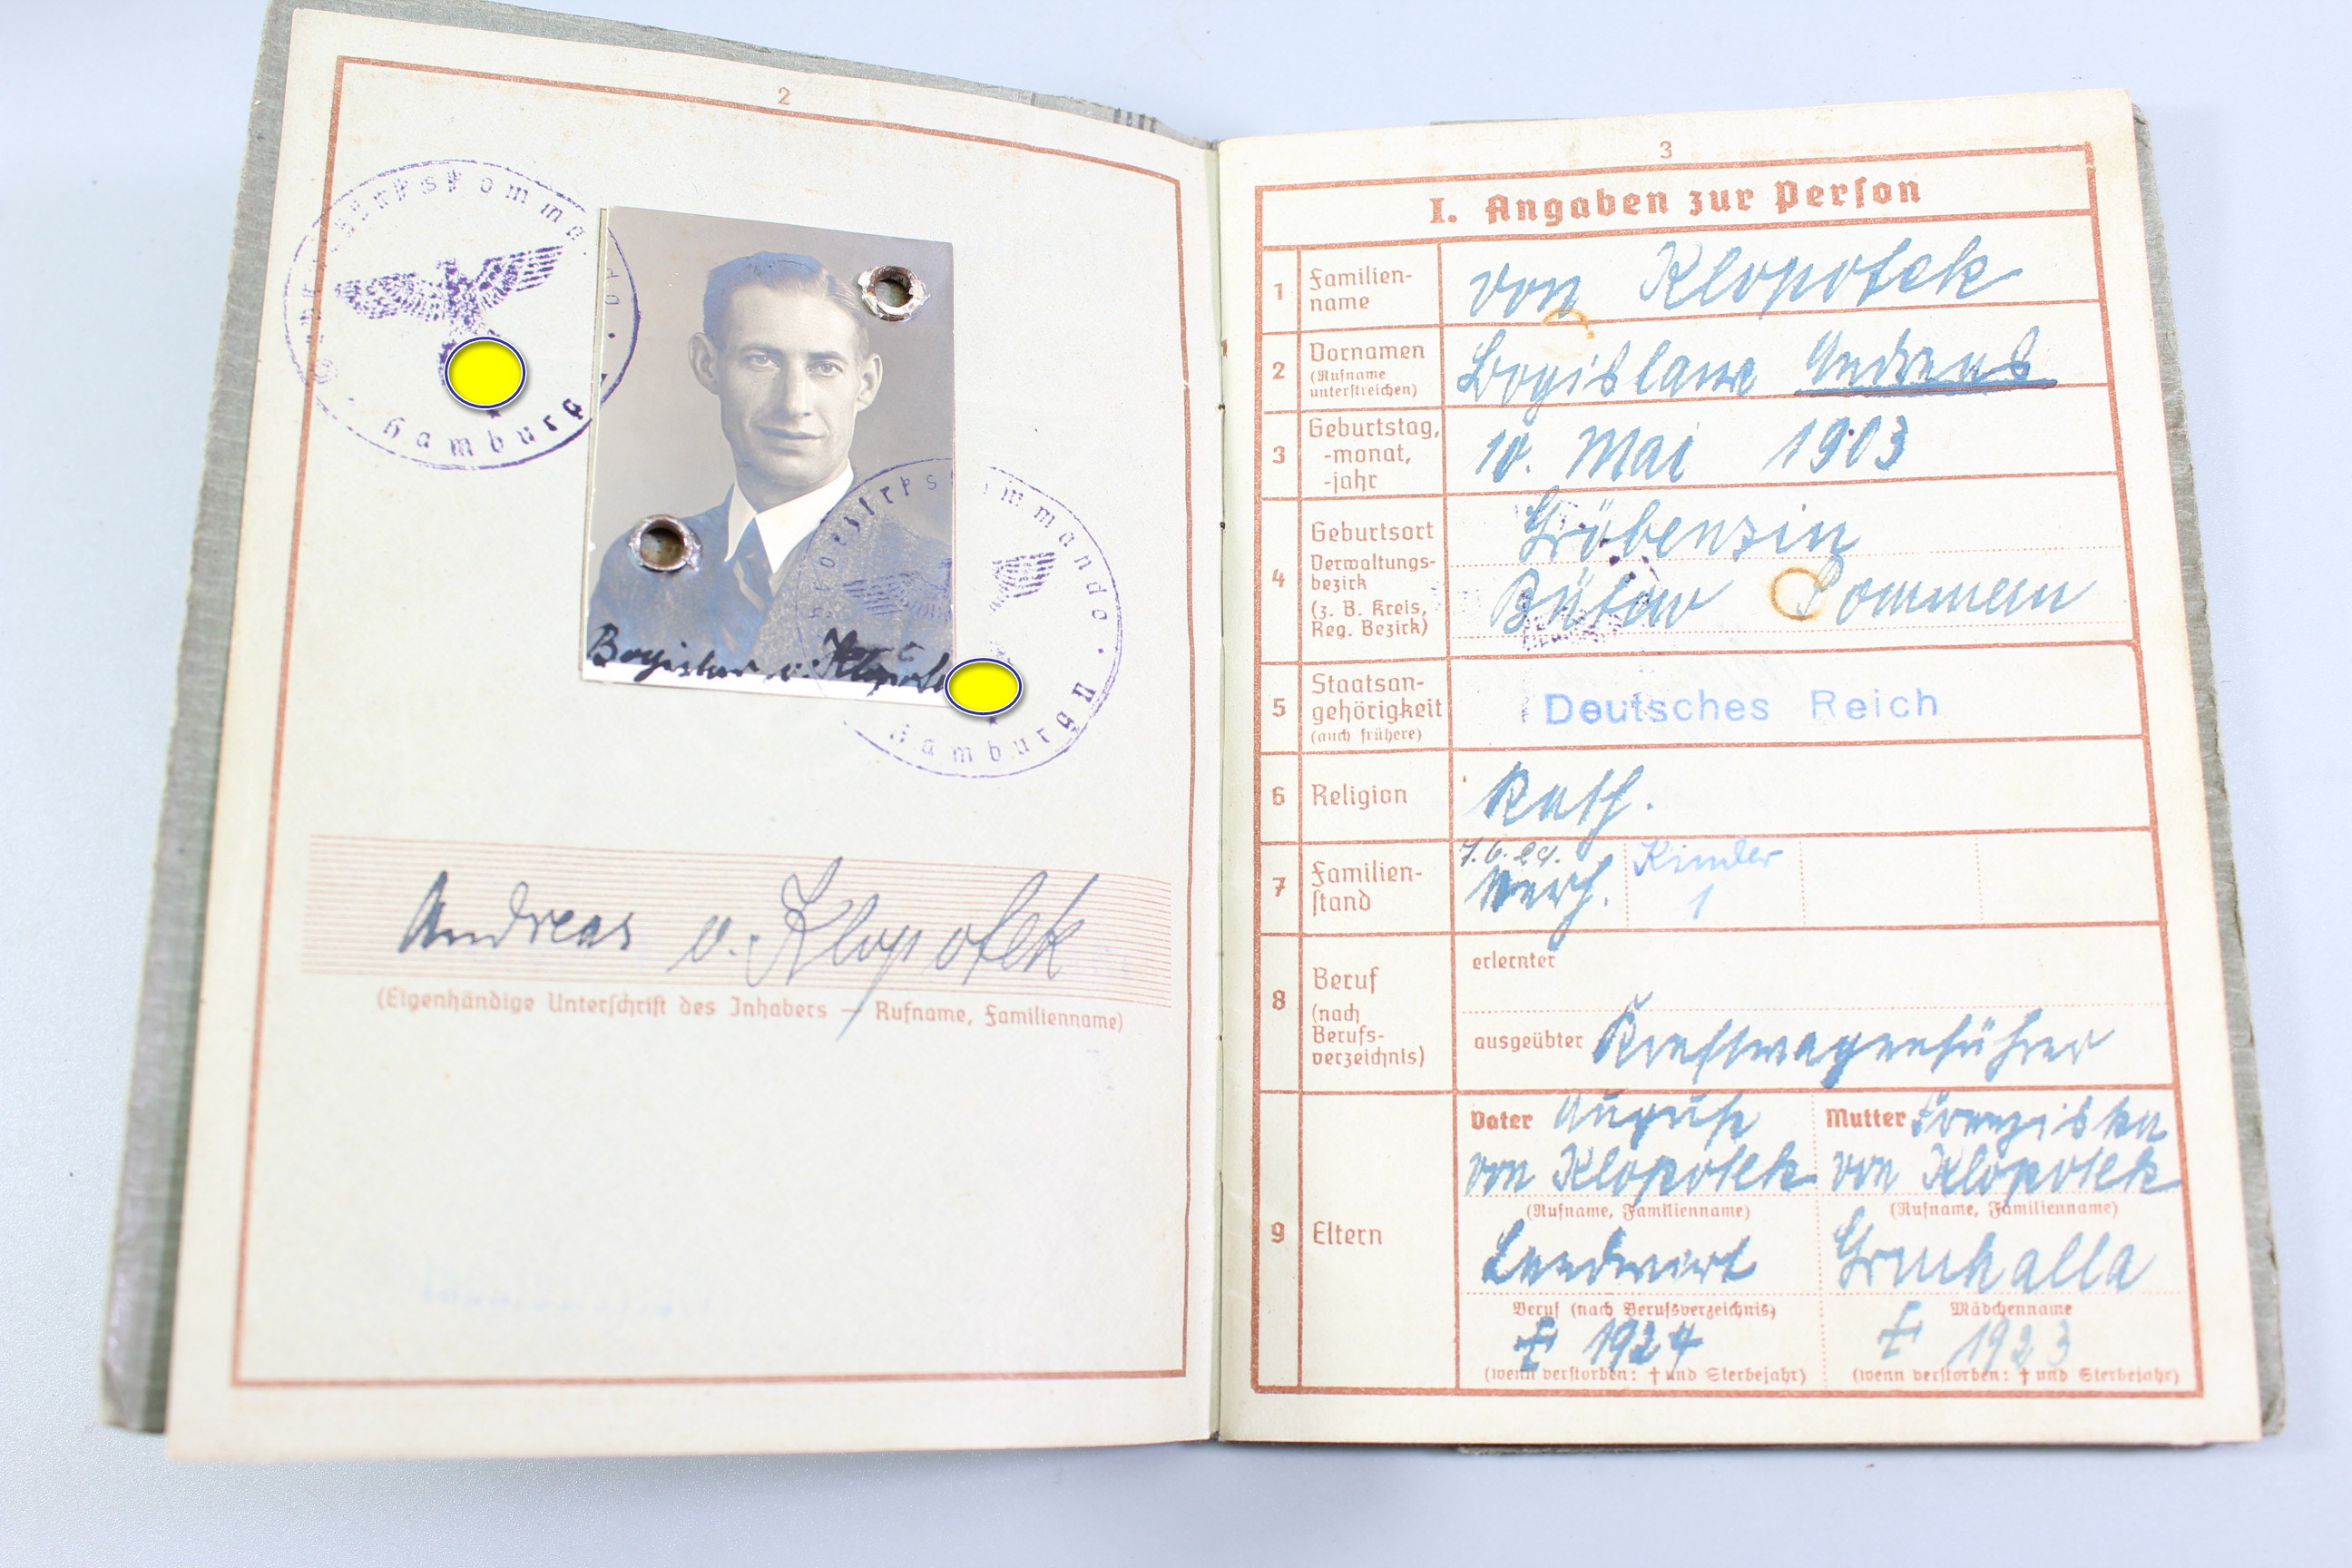 2
Wehrbezirkskommando
Hamburg
Bogislav v. Klopotek
kommando
Hamburg
Andreas v. Klopotek
(Eigenhändige Unterschrift des Inhabers — Rufname, Familienname)
3
I. Angaben zur Person
1 Familien-
name
von Klopotek
2 Vornamen
(Rufname
unterstreichen)
Bogislaw Andreas
3 Geburtstag,
-monat,
-jahr
10. Mai 1903
4 Geburtsort
Verwaltungs-
bezirk
(z. B. Kreis,
Reg. Bezirk)
Gröbenzin
Bütow Pommern
5 Staatsan-
gehörigkeit
(auch frühere)
Deutsches Reich
6 Religion
Kath.
7 Familien-
stand
verh.
Kinder
1
8 Beruf
(nach
Berufs-
verzeichnis)
erlernter
ausgeübter Kraftwagenführer
9 Eltern
Vater August
von Klopotek
(Rufname, Familienname)
Landwirt
Beruf (nach Berufsverzeichnis)
† 1924
(wenn verstorben: † und Sterbejahr)
Mutter Franziska
von Klopotek
(Rufname, Familienname)
Mädchenname
† 1923
(wenn verstorben: † und Sterbejahr)